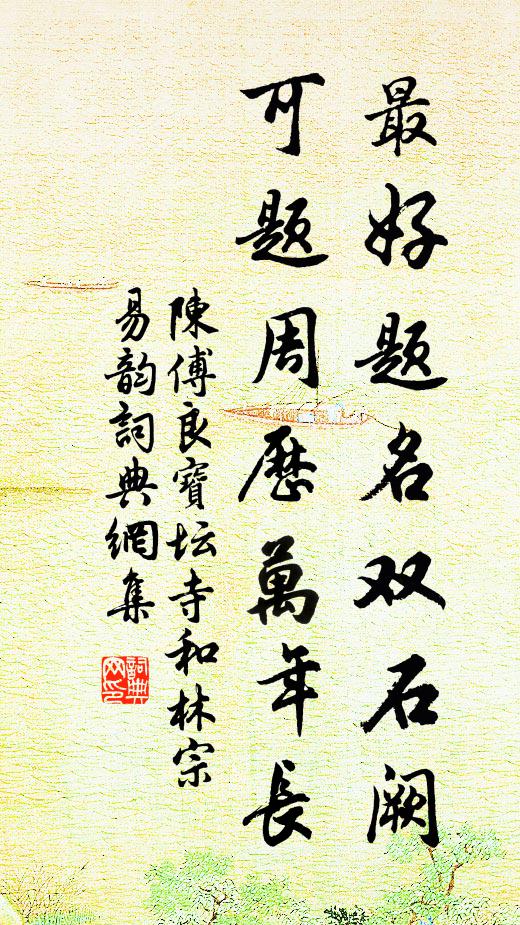 最好题名双石阙
可题周历萬年長
陳傅良寶坛寺和林宗
易韵詞典網集
詞典网印